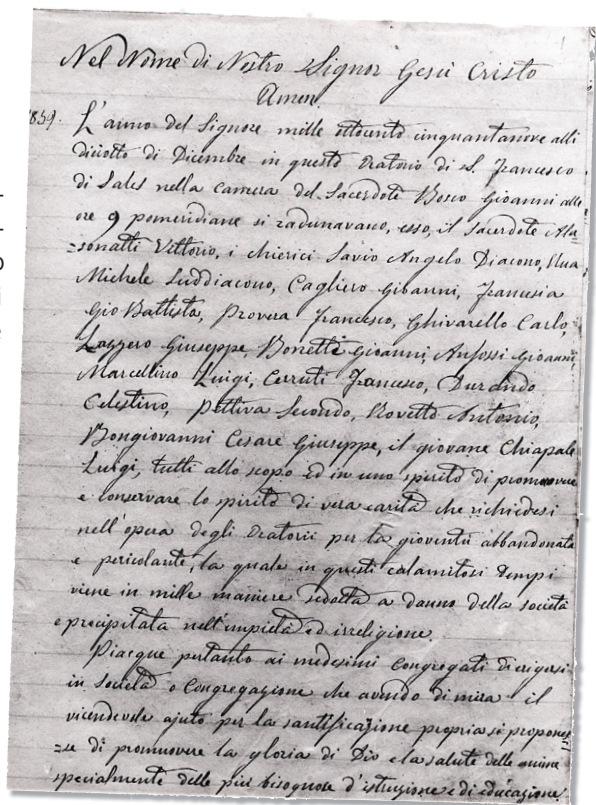 Nel Nome di Nostro Signor Gesù Cristo
Amen.
1859. L'anno del Signore mille ottocento cinquantanove alli
diciotto di Dicembre in questo Oratorio di S. Francesco
di Sales nella camera del Sacerdote Bosco Gioanni alle
ore 9 pomeridiane si radunavano, esso, il Sacerdote Ala=
=sonatti Vittorio, i chierici Savio Angelo Diacono, Rua
Michele Suddiacono, Cagliero Gioanni, Francesia
Gio Battista, Provera Francesco, Ghivarello Carlo,
Lazzero Giuseppe, Bonetti Gioanni, Anfossi Gioanni,
Marcellino Luigi, Cerruti Francesco, Durando
Celestino, Pettiva Secondo, Rovetto Antonio,
Bongiovanni Cesare Giuseppe, il giovane Chiapale
Luigi, tutti allo scopo ed in uno spirito di promuovere
e conservare lo spirito di vera carità che richiedesi
nell'opera degli Oratorii per la gioventù abbandonata
e pericolante, la quale in questi calamitosi tempi
viene in mille maniere sedotta a danno della società
e precipitata nell'empietà ed irreligione.
Piacque pertanto ai medesimi Congregati di erigersi
in Società o Congregazione che avendo di mira il
vicendevole ajuto per la santificazione propria si propones
=se di promuovere la gloria di Dio e la salute delle anime
specialmente delle più bisognose d'istruzione e di educazione